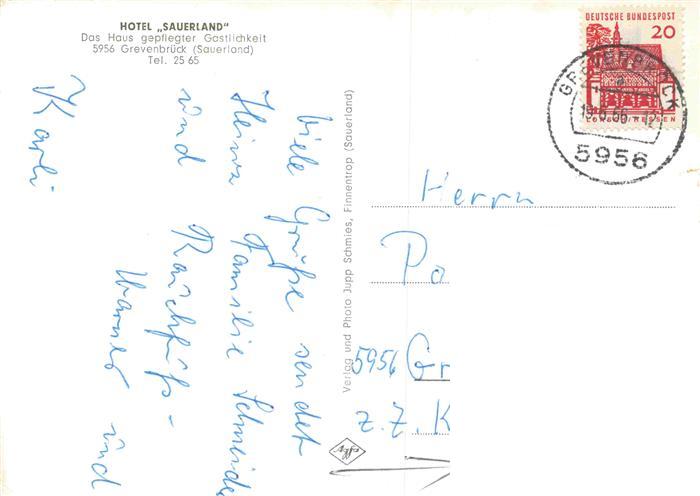 HOTEL „SAUERLAND"
Das Haus gepflegter Gastlichkeit
5956 Grevenbrück (Sauerland)
Tel. 25 65
Viele Grüße sendet
Heinz Familie Schneider
und Rauchfuß-
Werner und
Karli
Verlag und Photo Jupp Schmies, Finnentrop (Sauerland)
agfa
DEUTSCHE BUNDESPOST
20
LORSCH/HESSEN
GREVENBRÜCK
a
5956
Herrn
Po
5956 Gr
z. Z. K